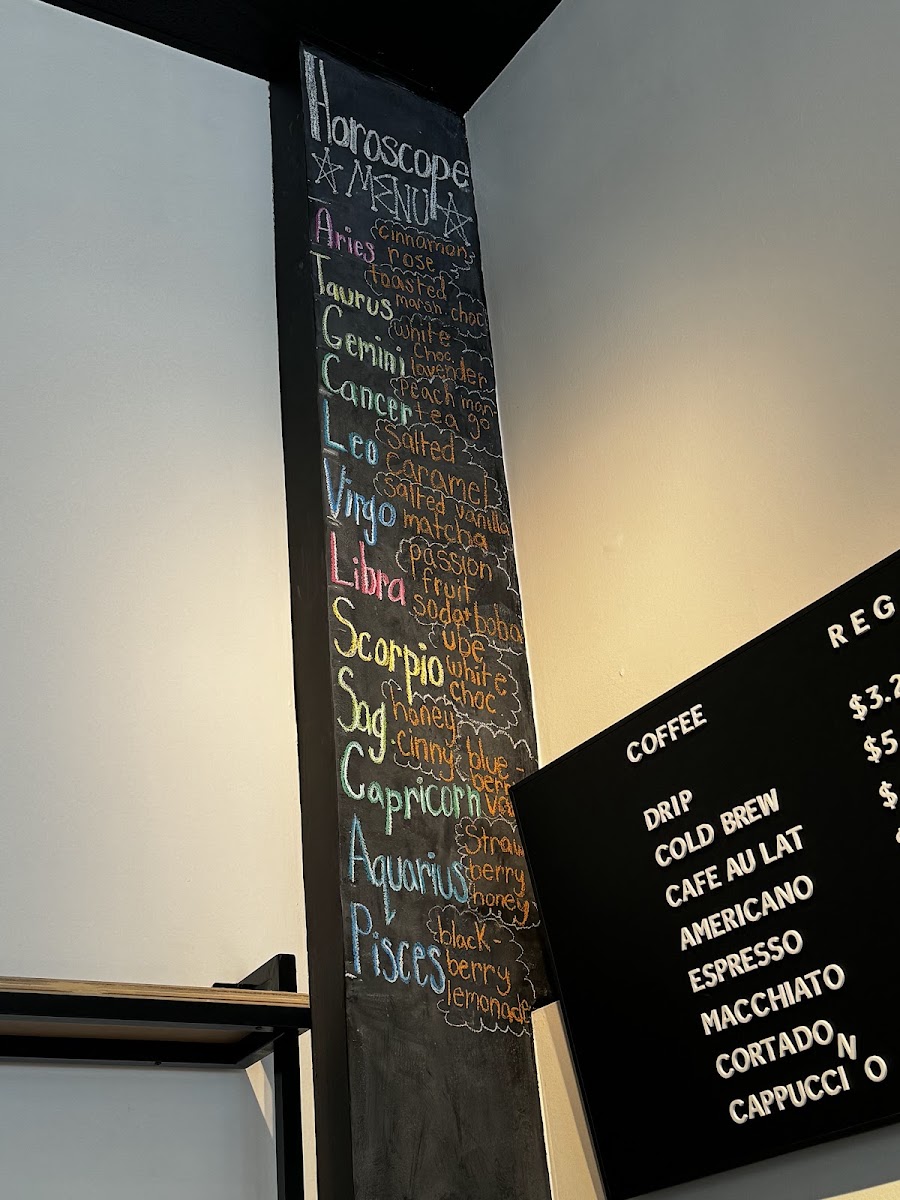 Horoscope
☆ MENU ☆
Aries cinnamon
rose
Taurus toasted
marsh. choc
Gemini white
choc.
lavender
Cancer peach man-
tea go
Leo salted
caramel
Virgo salted vanilla
matcha
Libra passion
fruit
soda+boba
Scorpio ube
white
choc
Sag. honey
cinny
Capricorn blue-
berry
Aquarius Straw
berry
honey
Pisces black-
berry
lemonade
REG
COFFEE
DRIP $3.2
COLD BREW $5
CAFE AU LAT $
AMERICANO
ESPRESSO
MACCHIATO
CORTADO
CAPPUCCINO